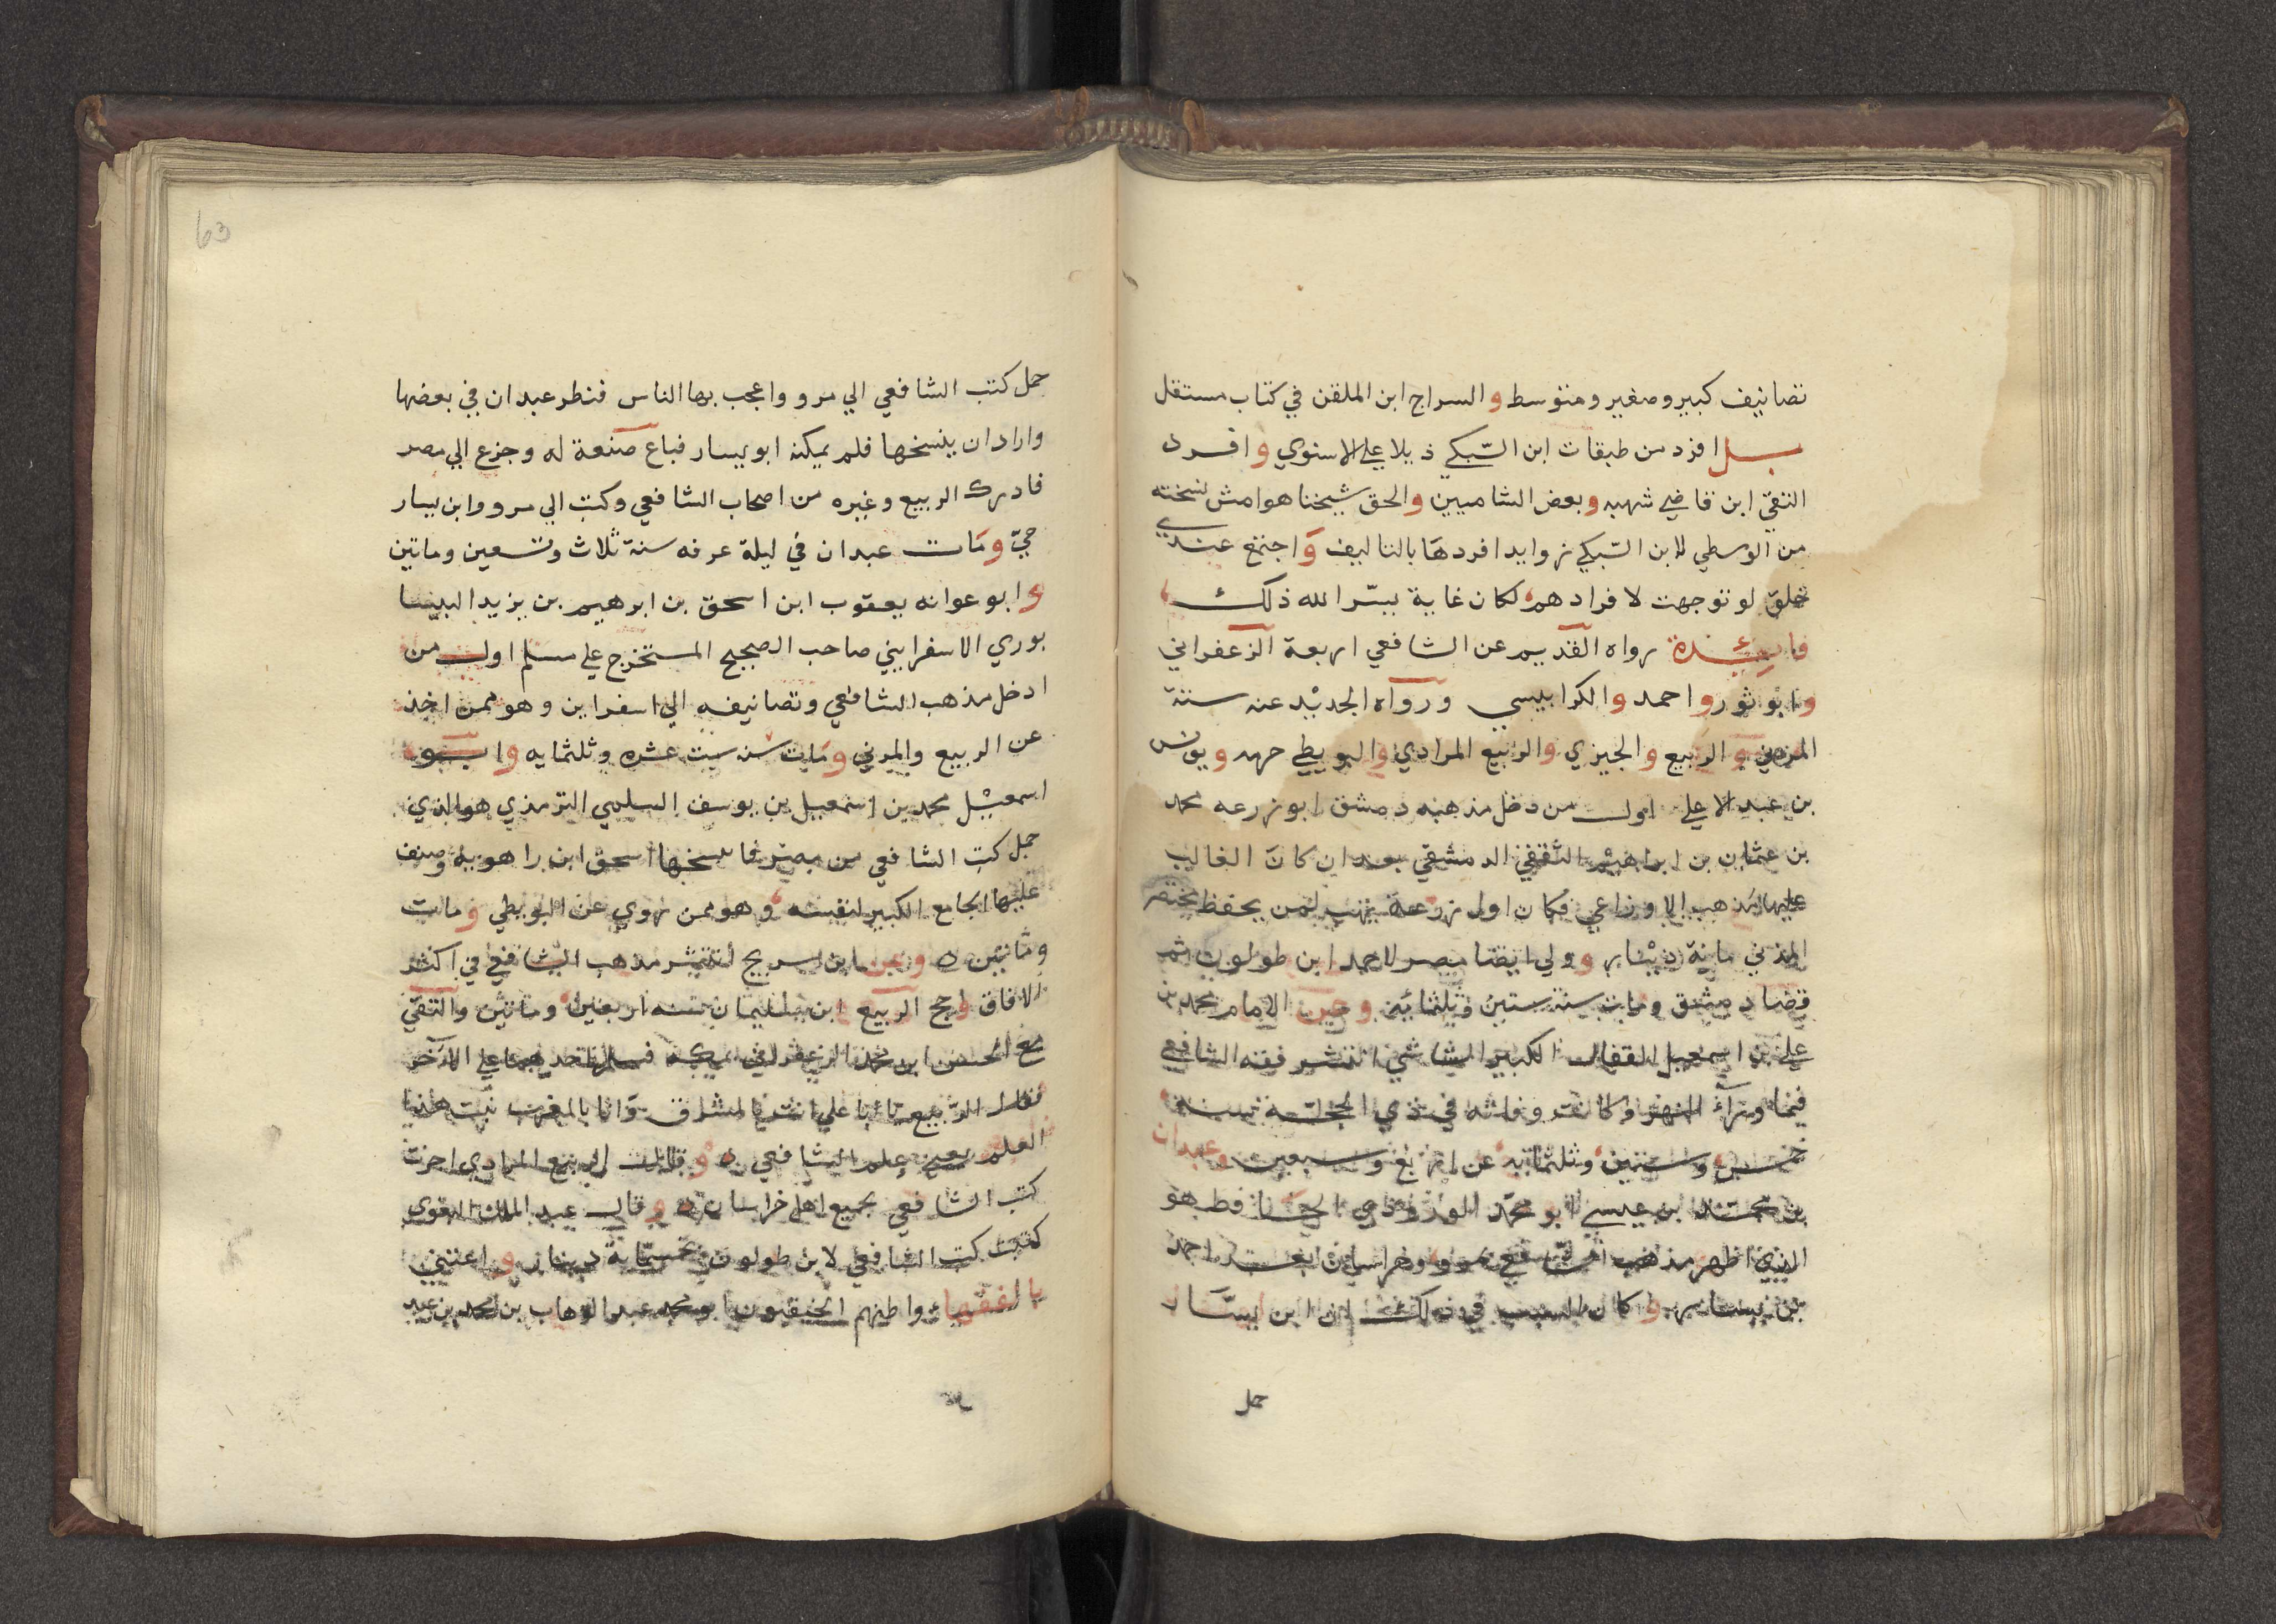 تصانيف كبير وصغير ومتوسط والسراج ابن الملقن في كتاب مستقل
بل افرد من طبقات ابن السبكي ذيلا علي الاسنوي وافرد
التقي ابن قاضي شهبه وبعض الشاميين والحق شيخنا هوامش نسخته
من الوسطي لابن السبكي زوايد افردها بالتاليف واجتمع عندي
خلق لو توجهت لافرادهم لكان غاية يسر الله ذلك
فايدة رواه القديم عن الشافعي اربعة الزعفراني
وابو ثور واحمد والكرابيسي ورواه الجديد عنه ستة
المزني والربيع والجيزي والربيع المرادي والبويطي حرمه ويونس
بن عبد الاعلي اول من دخل مذهبه دمشق ابو زرعه محمد
بن عثمان بن ابراهيم الثقفي الدمشقي بعد ان كان الغالب
عليها مذهب الاوزاعي فكان اول زرعة يهب لمن يحفظ مختصر
المزني ماية دينار وولي ايضا مصر لاحمد ابن طولون ثم
قضا دمشق ومات سنة ستين وثلثمائه وحين الامام محمد بن
علي بن اسمعيل القفال الكبير الشاشي انتشر فقه الشافعي
فيما وراء النهر وكانت وفاته في ذي الحجة سنة
خمس وستين وثلثمائيه عن اربع وسبعين وعبدان
بن محمد ابن عيسي ابو محمد المروزي الحافظ هو
الذي اظهر مذهب الشافعي بمرو وخراسان بعد احمد
بن يسار وكان السبب في ذلك ان ابن يسار
حمل
63
حمل كتب الشافعي الي مرو واعجب بها الناس فنظر عبدان في بعضها
واراد ان ينسخها فلم يمكنه ابو يسار فباع ضيعة له وخرج الي مصر
فادرك الربيع وغيره من اصحاب الشافعي وكتب الي مرو وابن يسار
حي ومات عبدان في ليلة عرفه سنة ثلاث وتسعين وماتين
وابو عوانه يعقوب ابن اسحق بن ابرهيم بن يزيد النيسا
بوري الاسفرايني صاحب الصحيح المستخرج علي مسلم اول من
ادخل مذهب الشافعي وتصانيفه الي اسفراين وهو ممن اخذ
عن الربيع والمزني ومات سنه ست عشره وثلثمايه وابو
اسمعيل محمد بن اسمعيل بن يوسف السلمي الترمذي هو الذي
حمل كتب الشافعي من مصر فانسخها اسحق ابن راهويه وصنف
عليها الجامع الكبير لنفسه وهو ممن روي عن البويطي ومات
وثمانين وعن ابن سريج انتشر مذهب الشافعي في اكثر
الافاق وحج الربيع ابن سليمان سنه اربعين وماتين والتقي
مع الحسن ابن محمد الزعفراني بمكه فسلم احدهما علي الاخر
فقال الربيع يا ابا علي انت بالمشرق وانا بالمغرب نبث هذا
العلم يعني علم الشافعي وقال الربيع المرادي اخرت
كتب الشافعي بجميع اهل خراسان وقال عبد الملك البغوي
كتبت كتب الشافعي لابن طولون بخمسماية دينار واعتني
بالفقهاء واظنهم الحنيفيون ابو محمد عبد الوهاب بن محمد بن عبد